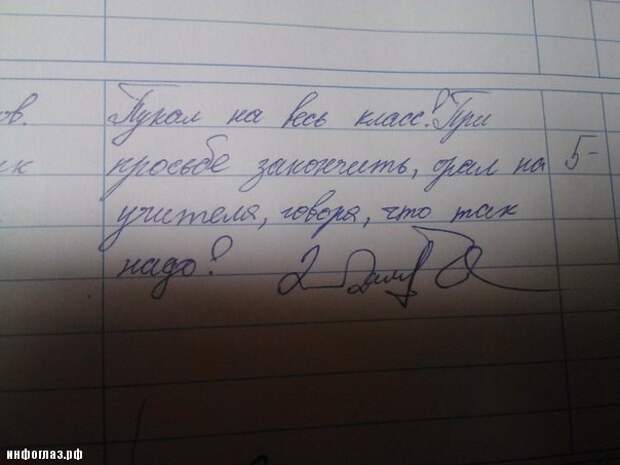 ов. Пукал на весь класс! При
ик просьбе закончить, орал на 5-
учителя, говоря, что так
надо! 2
инфоглаз.рф